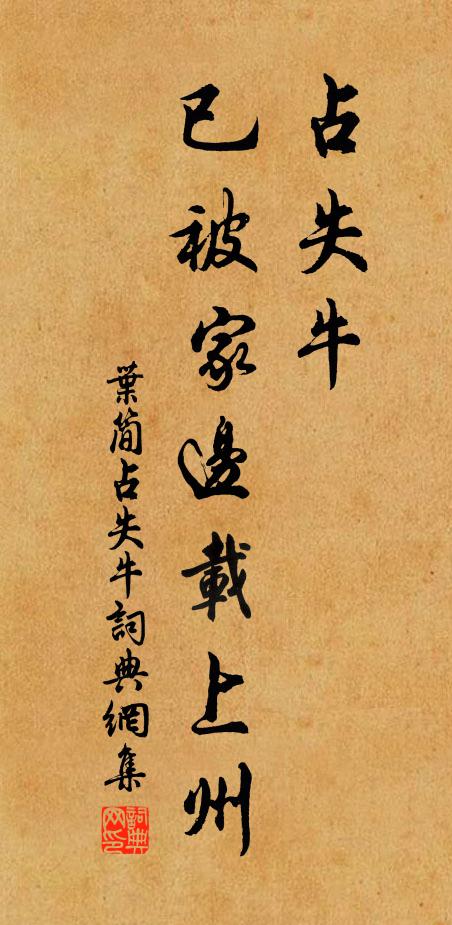 占失牛
已被家邊載上州
葉簡占失牛詞典網集
詞典网印